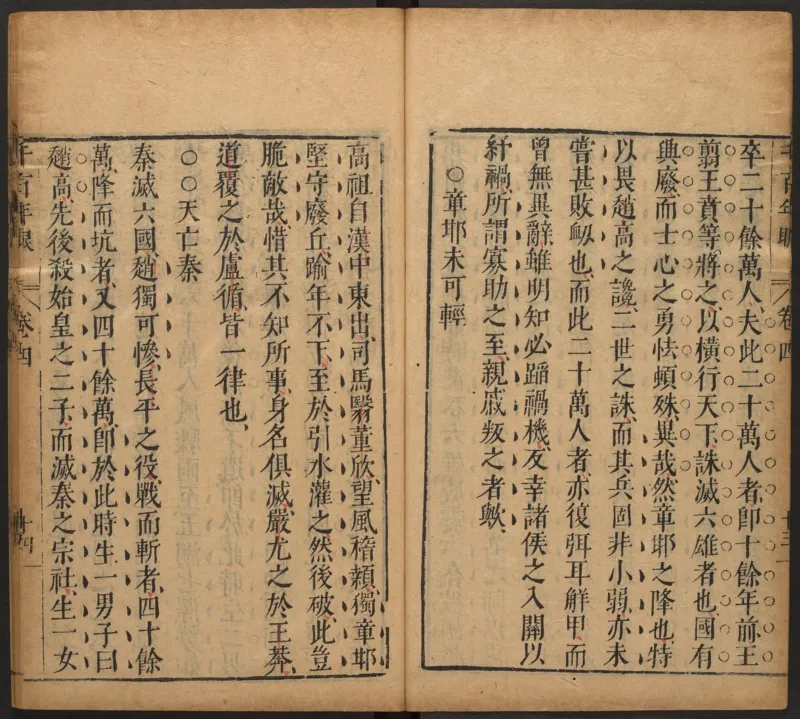 卒二十餘萬人、夫此二十萬人者、卽十餘年前、王
翦王賁等將之、以橫行天下、誅滅六雄者也、國有
興廢、而士心之勇怯頓殊、異哉、然章邯之降也、特
以畏趙高之讒、二世之誅、而其兵固非小弱、亦未
嘗甚敗衂也、而此二十萬人者、亦復弭耳解甲、而
曾無異辭、雖明知必蹈禍機、反幸諸侯之入關以
紓禍、所謂寡助之至、親戚叛之者歟、
○章邯未可輕
高祖自漢中東出、司馬翳董欣、望風稽顙、獨章邯
堅守廢丘、踰年不下、至於引水灌之然後破、此豈
脆敵哉、惜其不知所事、身名俱滅、嚴尤之於王莽、
道覆之於盧循、皆一律也、
○○天亡秦
秦滅六國、趙獨可慘、長平之役、戰而斬者、四十餘
萬、降而坑者、又四十餘萬、卽於此時生一男子曰
趙高、先後殺始皇之二子、而滅秦之宗社、生一女
千百年眼 卷四 十三
千百年眼 卷四 十四